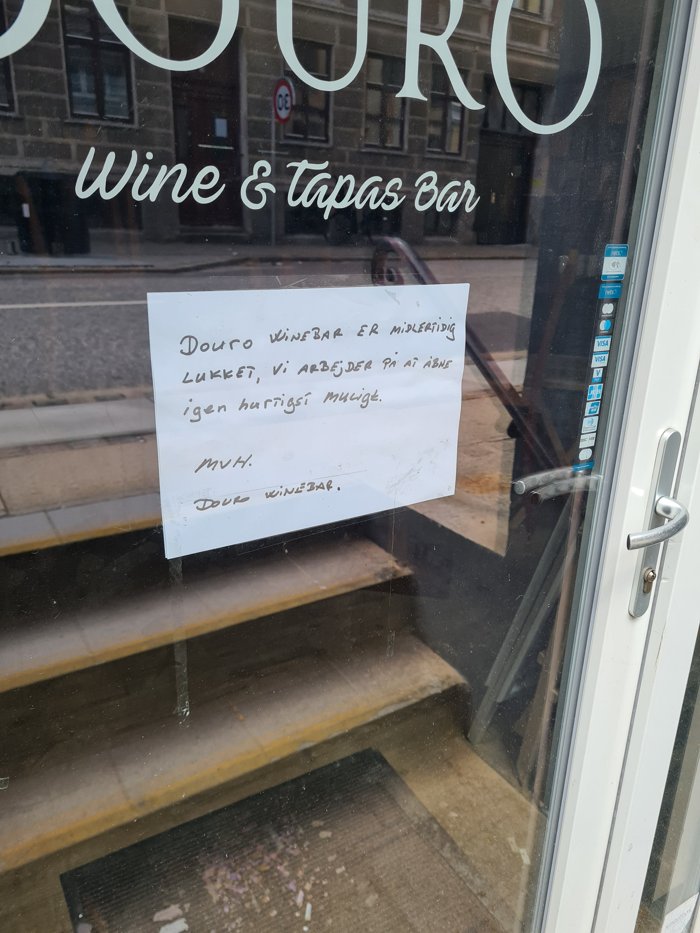 DOURO
Wine & Tapas Bar
DOURO WINEBAR ER MIDLERTIDIG
LUKKET, VI ARBEJDER PÅ AT ÅBNE
igen hurtigst muligt.
MVH.
DOURO WINEBAR.
VISA
VISA